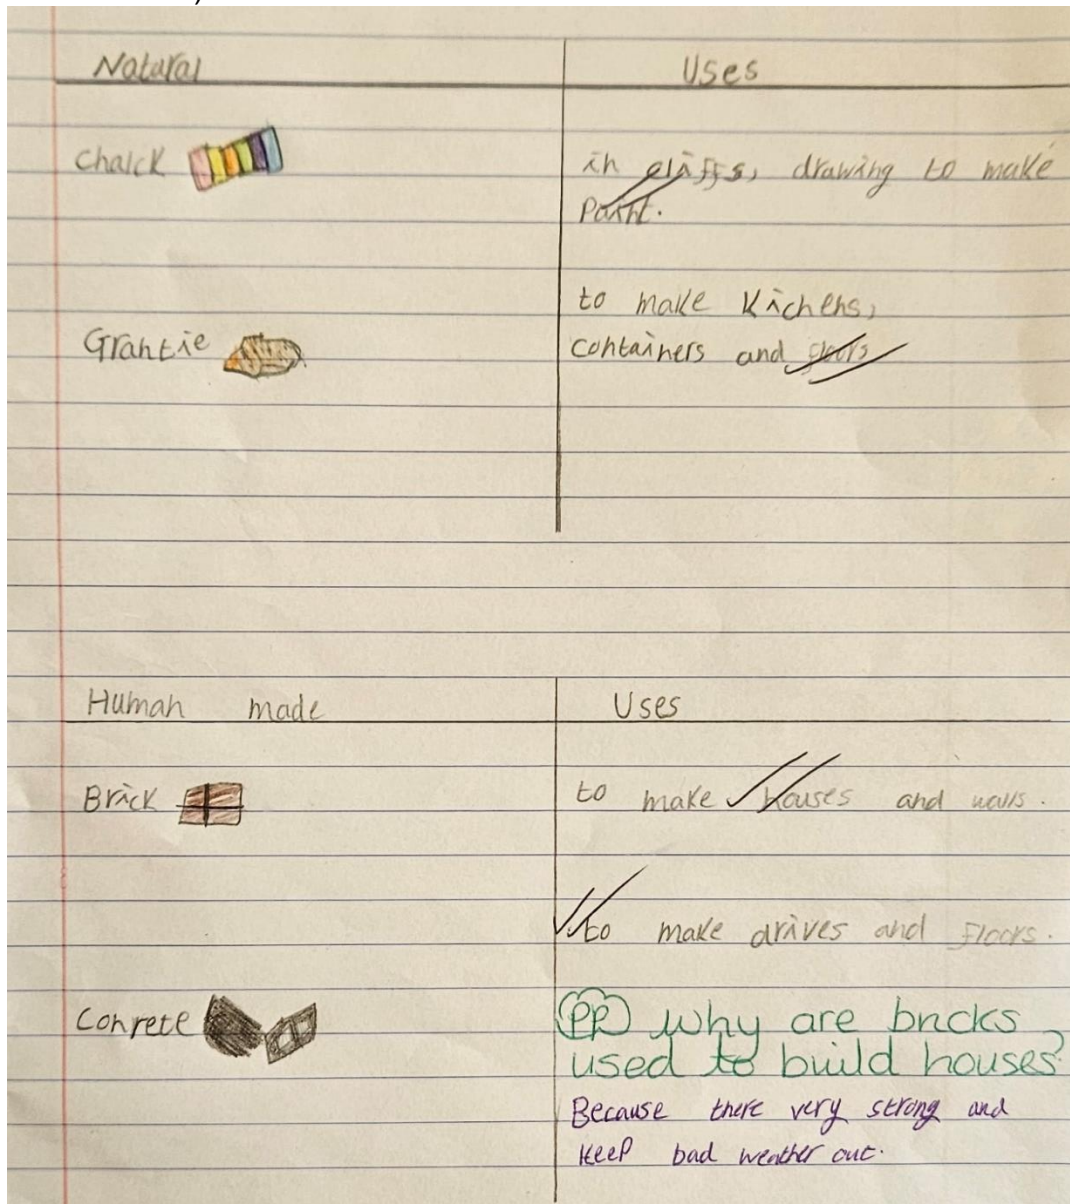 Natural Uses
Chalck in cliffs, drawing to make
Paint.
to make Kichens,
Grantie containers and floors
Human made Uses
Brick to make houses and walls.
to make drives and floors.
Conrete PP why are bricks
used to build houses?
Because there very strong and
Keep bad weather out.